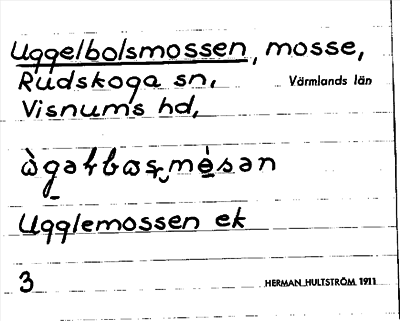 Uggelbolsmossen, mosse,
Rudskoga sn,
Värmlands län
Visnums hd,
Ugglemossen ek
3
HERMAN HULTSTRÖM 1911